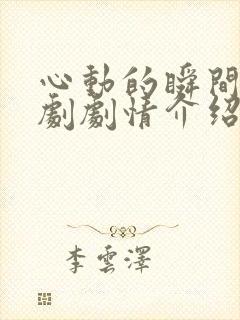 心動的瞬間
劇劇情介紹
李雲澤